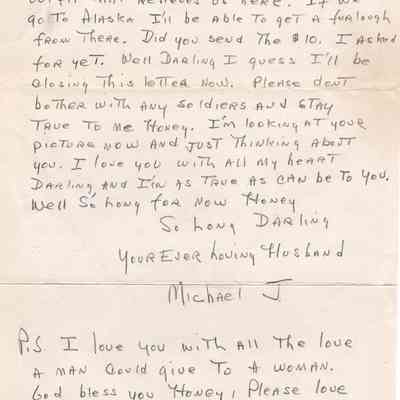 go To Alaska I'll be able To get A furlough
from There. Did you send The $10. I Asked
for yet. Well Darling I guess I'll be
closing This letter now. Please don't
bother with any soldiers and stay
True To me Honey. I'm looking at your
picture now and just Thinking About
you. I love you with all my heart
Darling and I'm as True as can be To you.
Well So Long for now Honey
So Long Darling
Your Ever Loving Husband
Michael J
P.S I love you with all The love
a man could give To A woman.
God bless you Honey, Please love